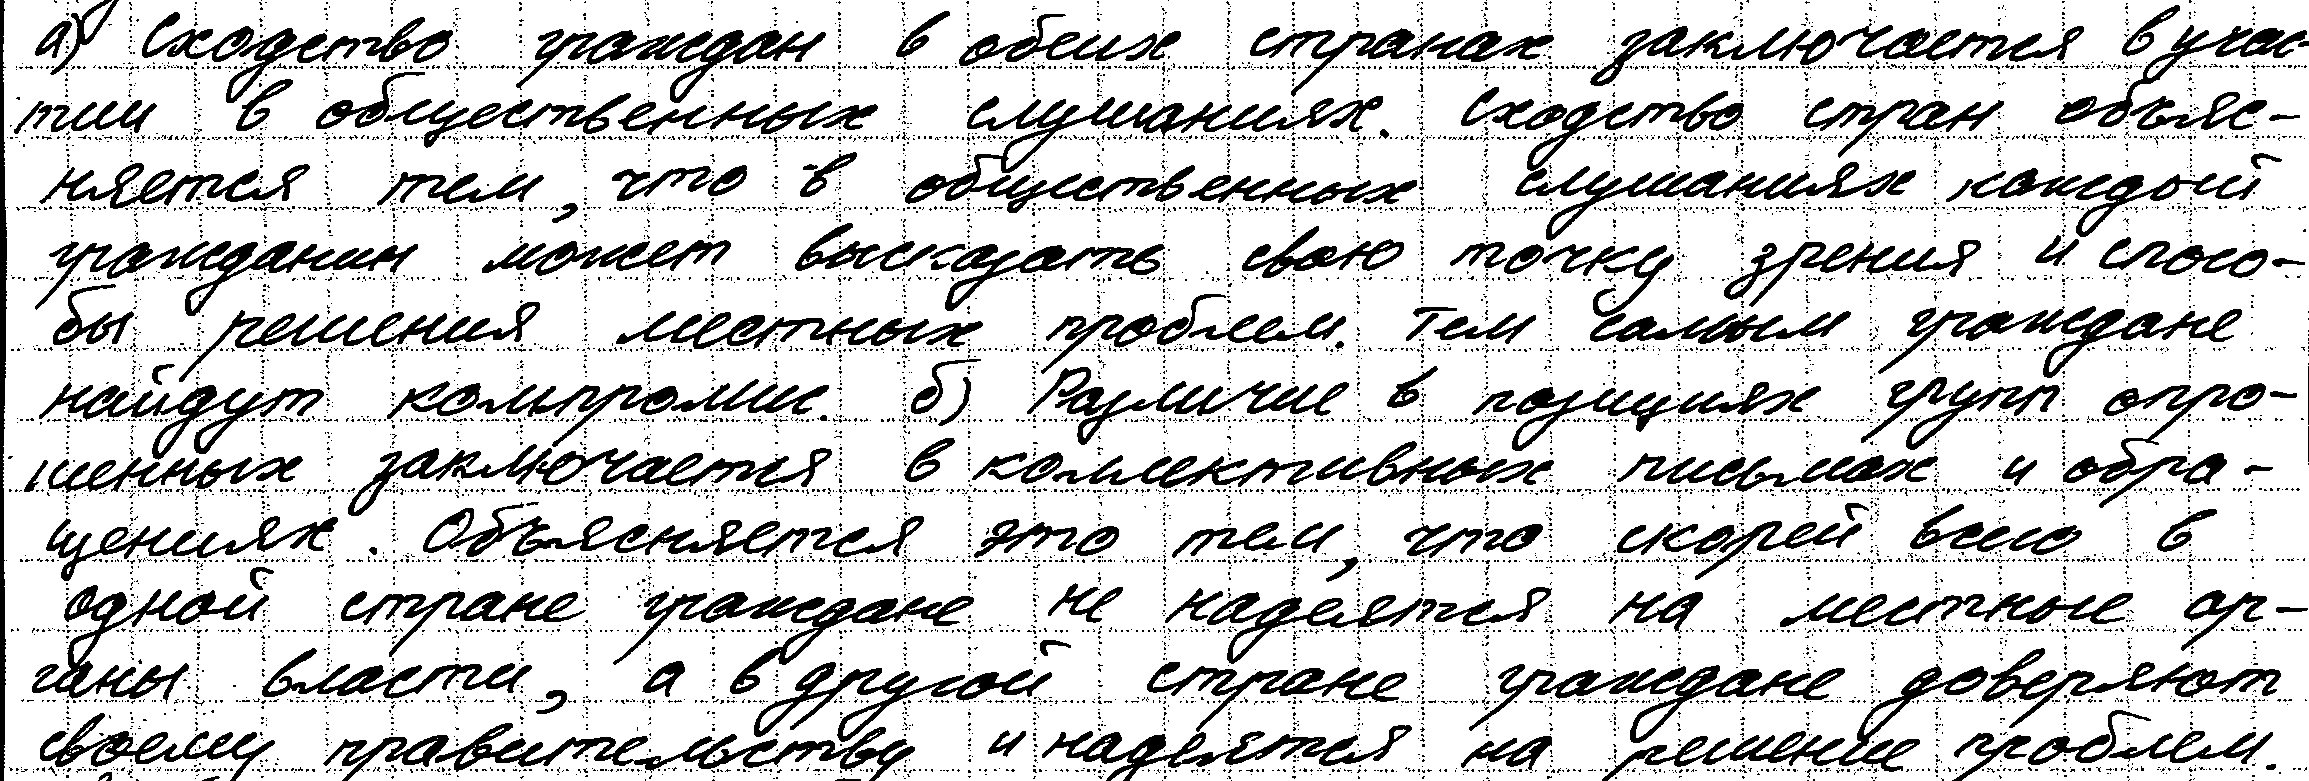 а) Сходство граждан в обеих странах заключается в учас-
тии в общественных слушаниях. Сходство стран объяс-
няется тем, что в общественных слушаниях каждый
гражданин может высказать свою точку зрения и спосо-
бы решения местных проблем. Тем самым граждане
найдут компромис. б) Различие в позициях групп опро-
шенных заключается в коллективных письмах и обра-
щениях. Объясняется это тем, что скорей всего в
одной стране граждане не надеятся на местные ор-
ганы власти, а в другой стране граждане доверяют
своему правительству и надеятся на решение проблем.